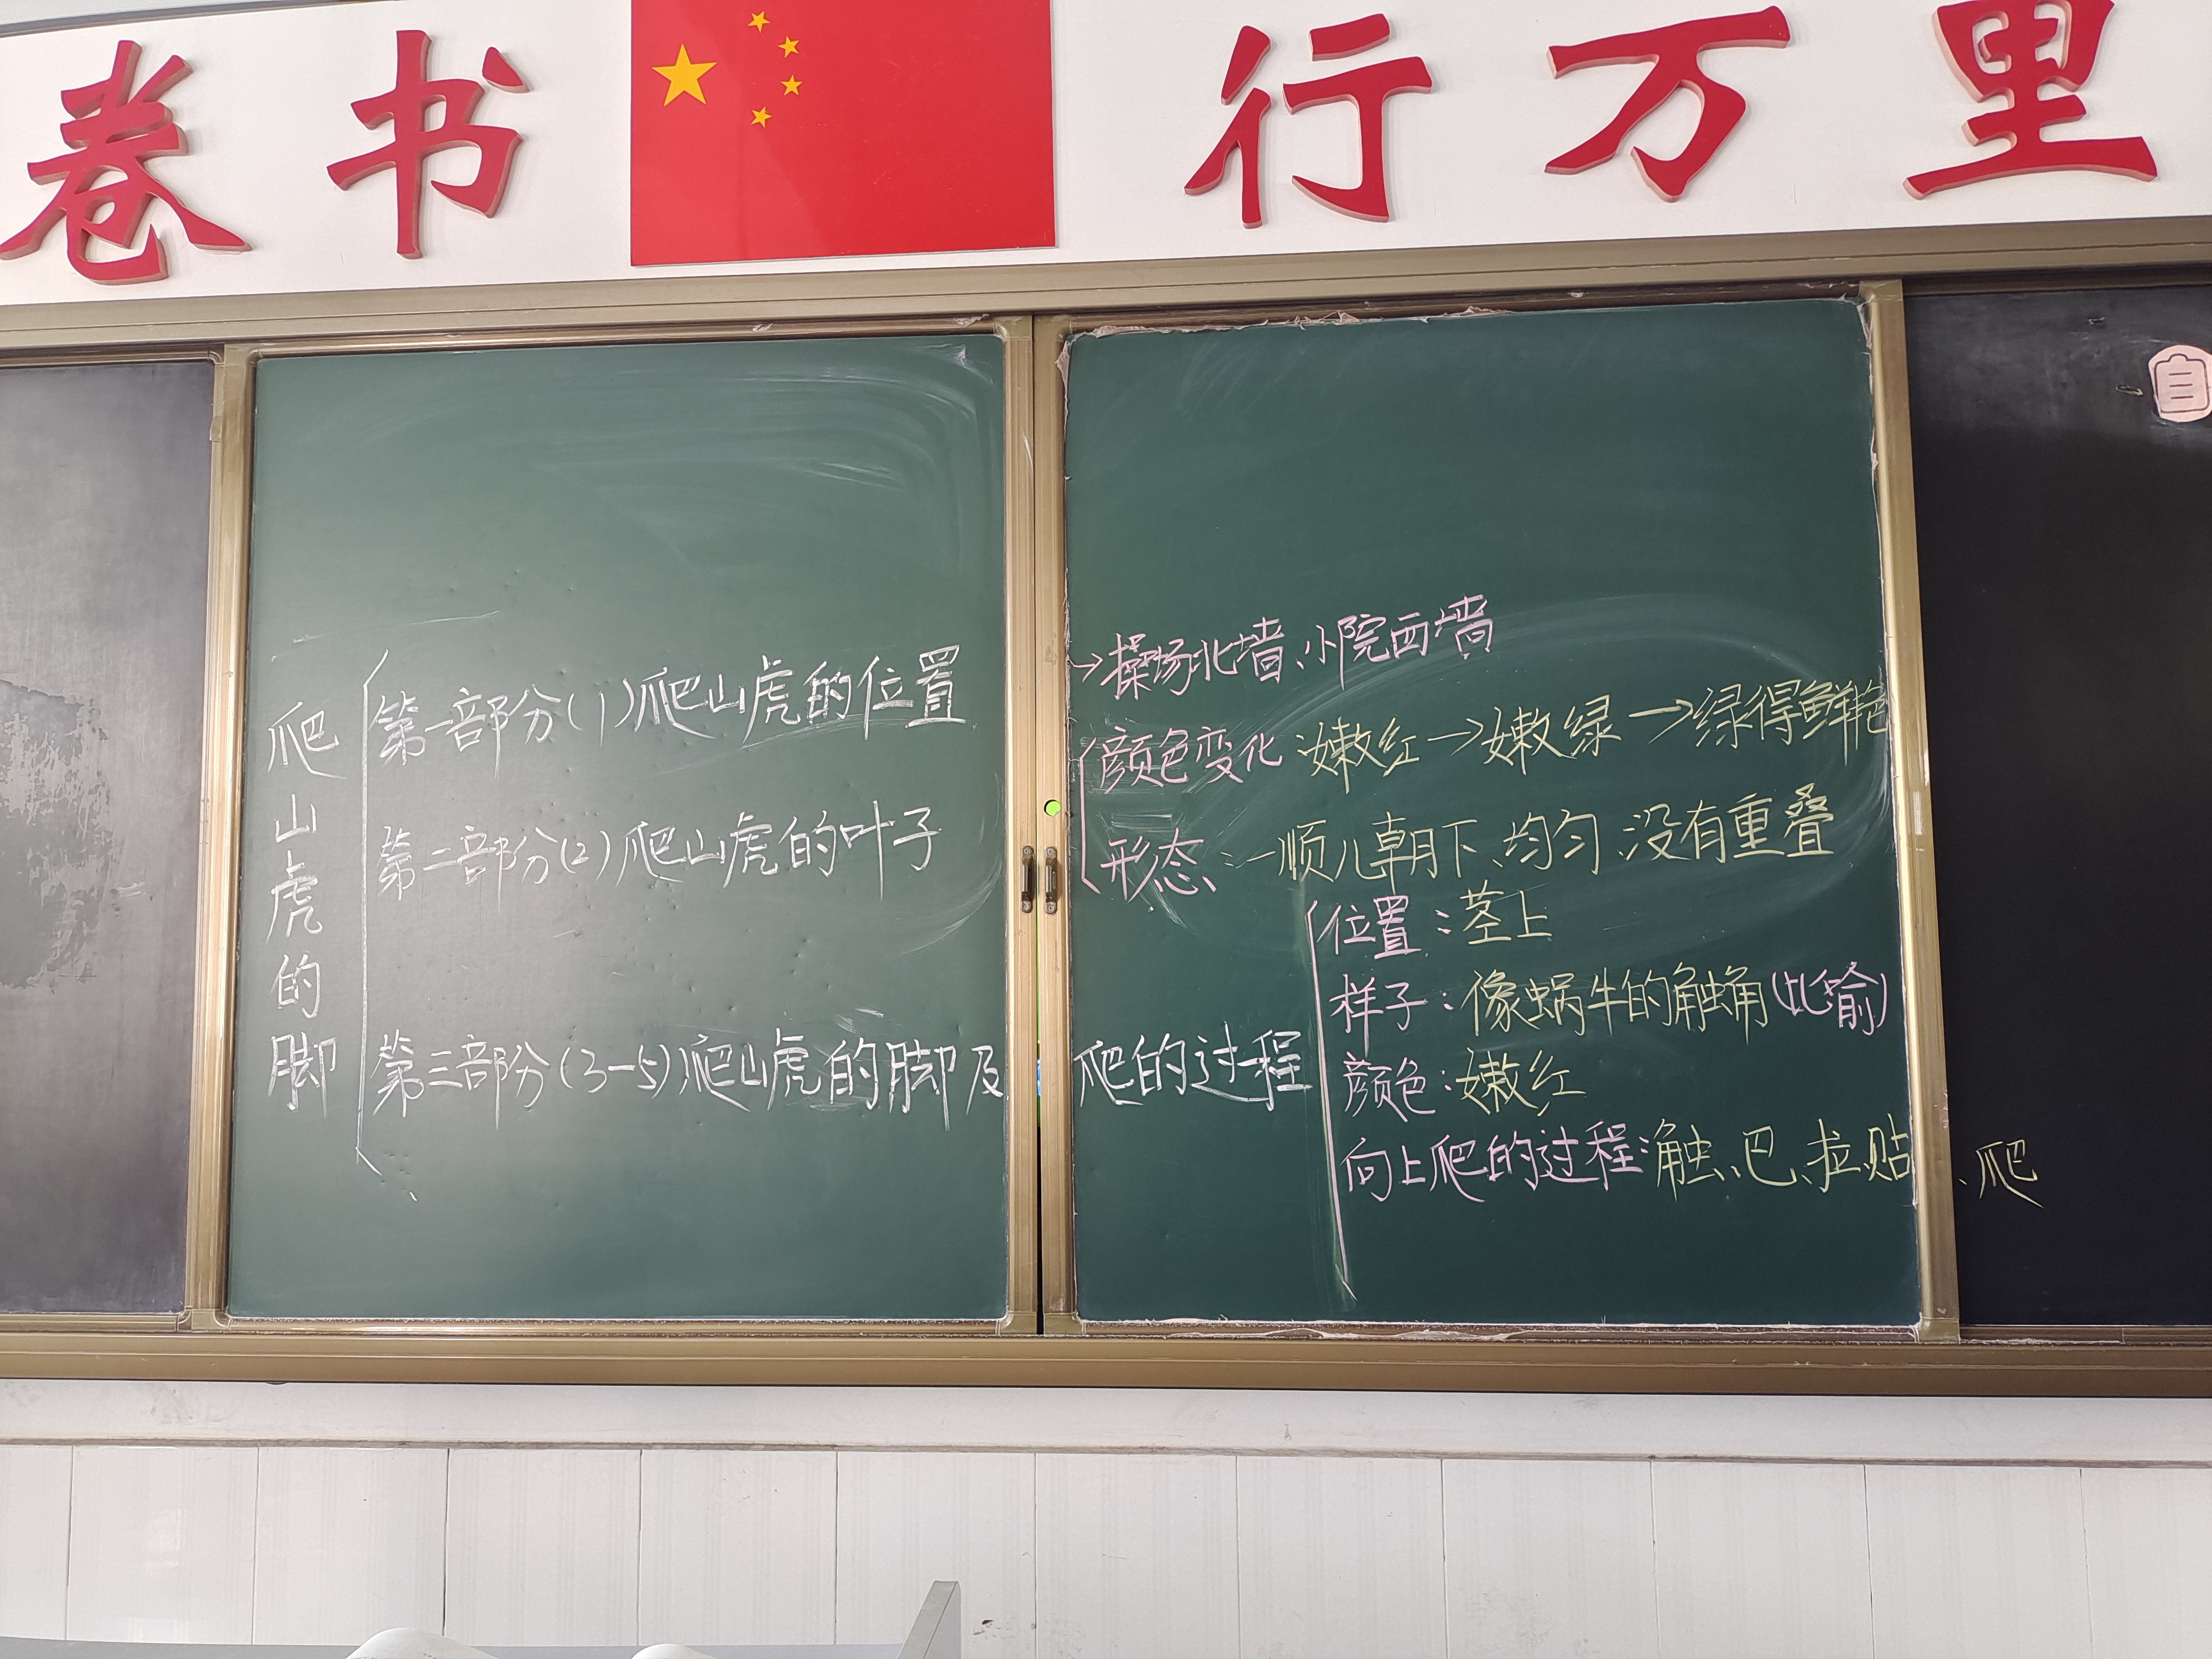 卷书 行万里
爬山虎的脚
第一部分(1)爬山虎的位置→操场北墙、小院西墙
第二部分(2)爬山虎的叶子
颜色变化:嫩红→嫩绿→绿得鲜艳
形态:一顺儿朝下、均匀、没有重叠
第三部分(3-5)爬山虎的脚及爬的过程
位置:茎上
样子:像蜗牛的触角(比喻)
颜色:嫩红
向上爬的过程:触、巴、拉、贴、爬